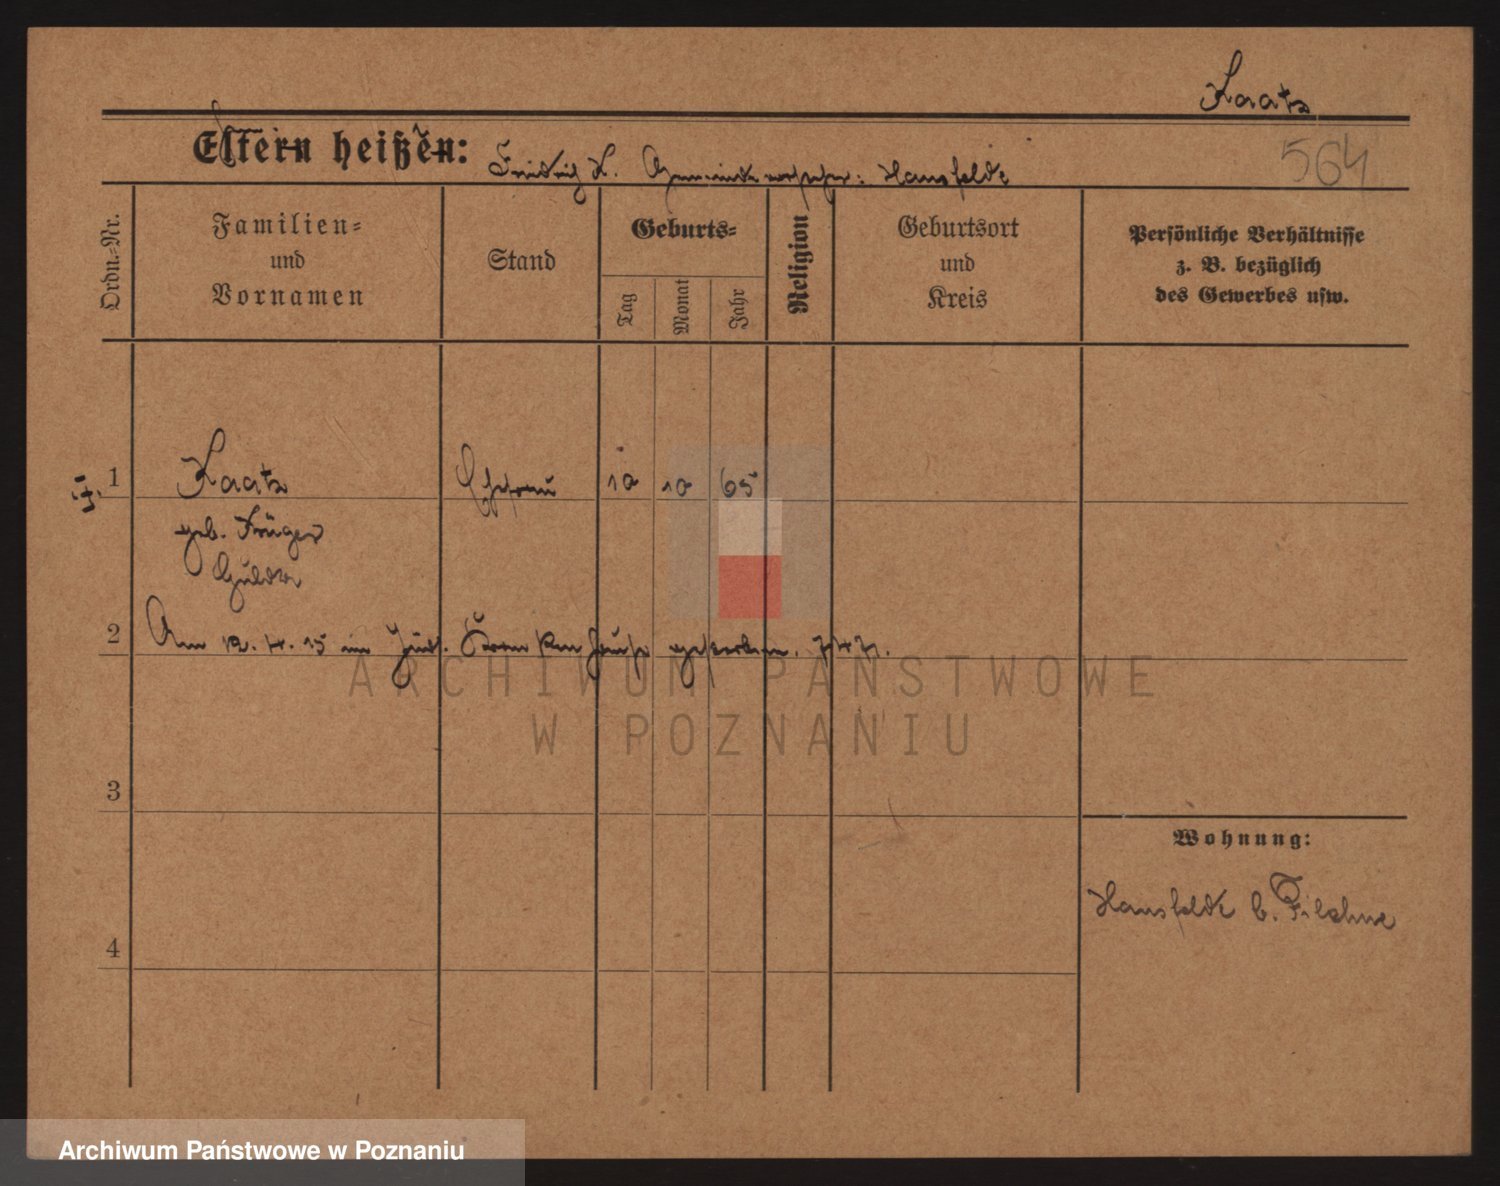 Kaatz
Eltern heißen: Friedrich K. Gemeindevorsteher: Hansfelde
564
Ordn.=Nr.
Familien=
und
Vornamen
Stand
Geburts=
Tag
Monat
Jahr
Religion
Geburtsort
und
Kreis
Persönliche Verhältnisse
z. B. bezüglich
des Gewerbes usw.
1 Kaatz Ehefrau 10 10 65
geb. Krüger
Hulda
2 Am 12. 4. 15 im Jüd. Krankenhause gestorben.
3
4
Wohnung:
Hansfelde b. Filehne
ARCHIWUM PAŃSTWOWE
W POZNANIU
Archiwum Państwowe w Poznaniu